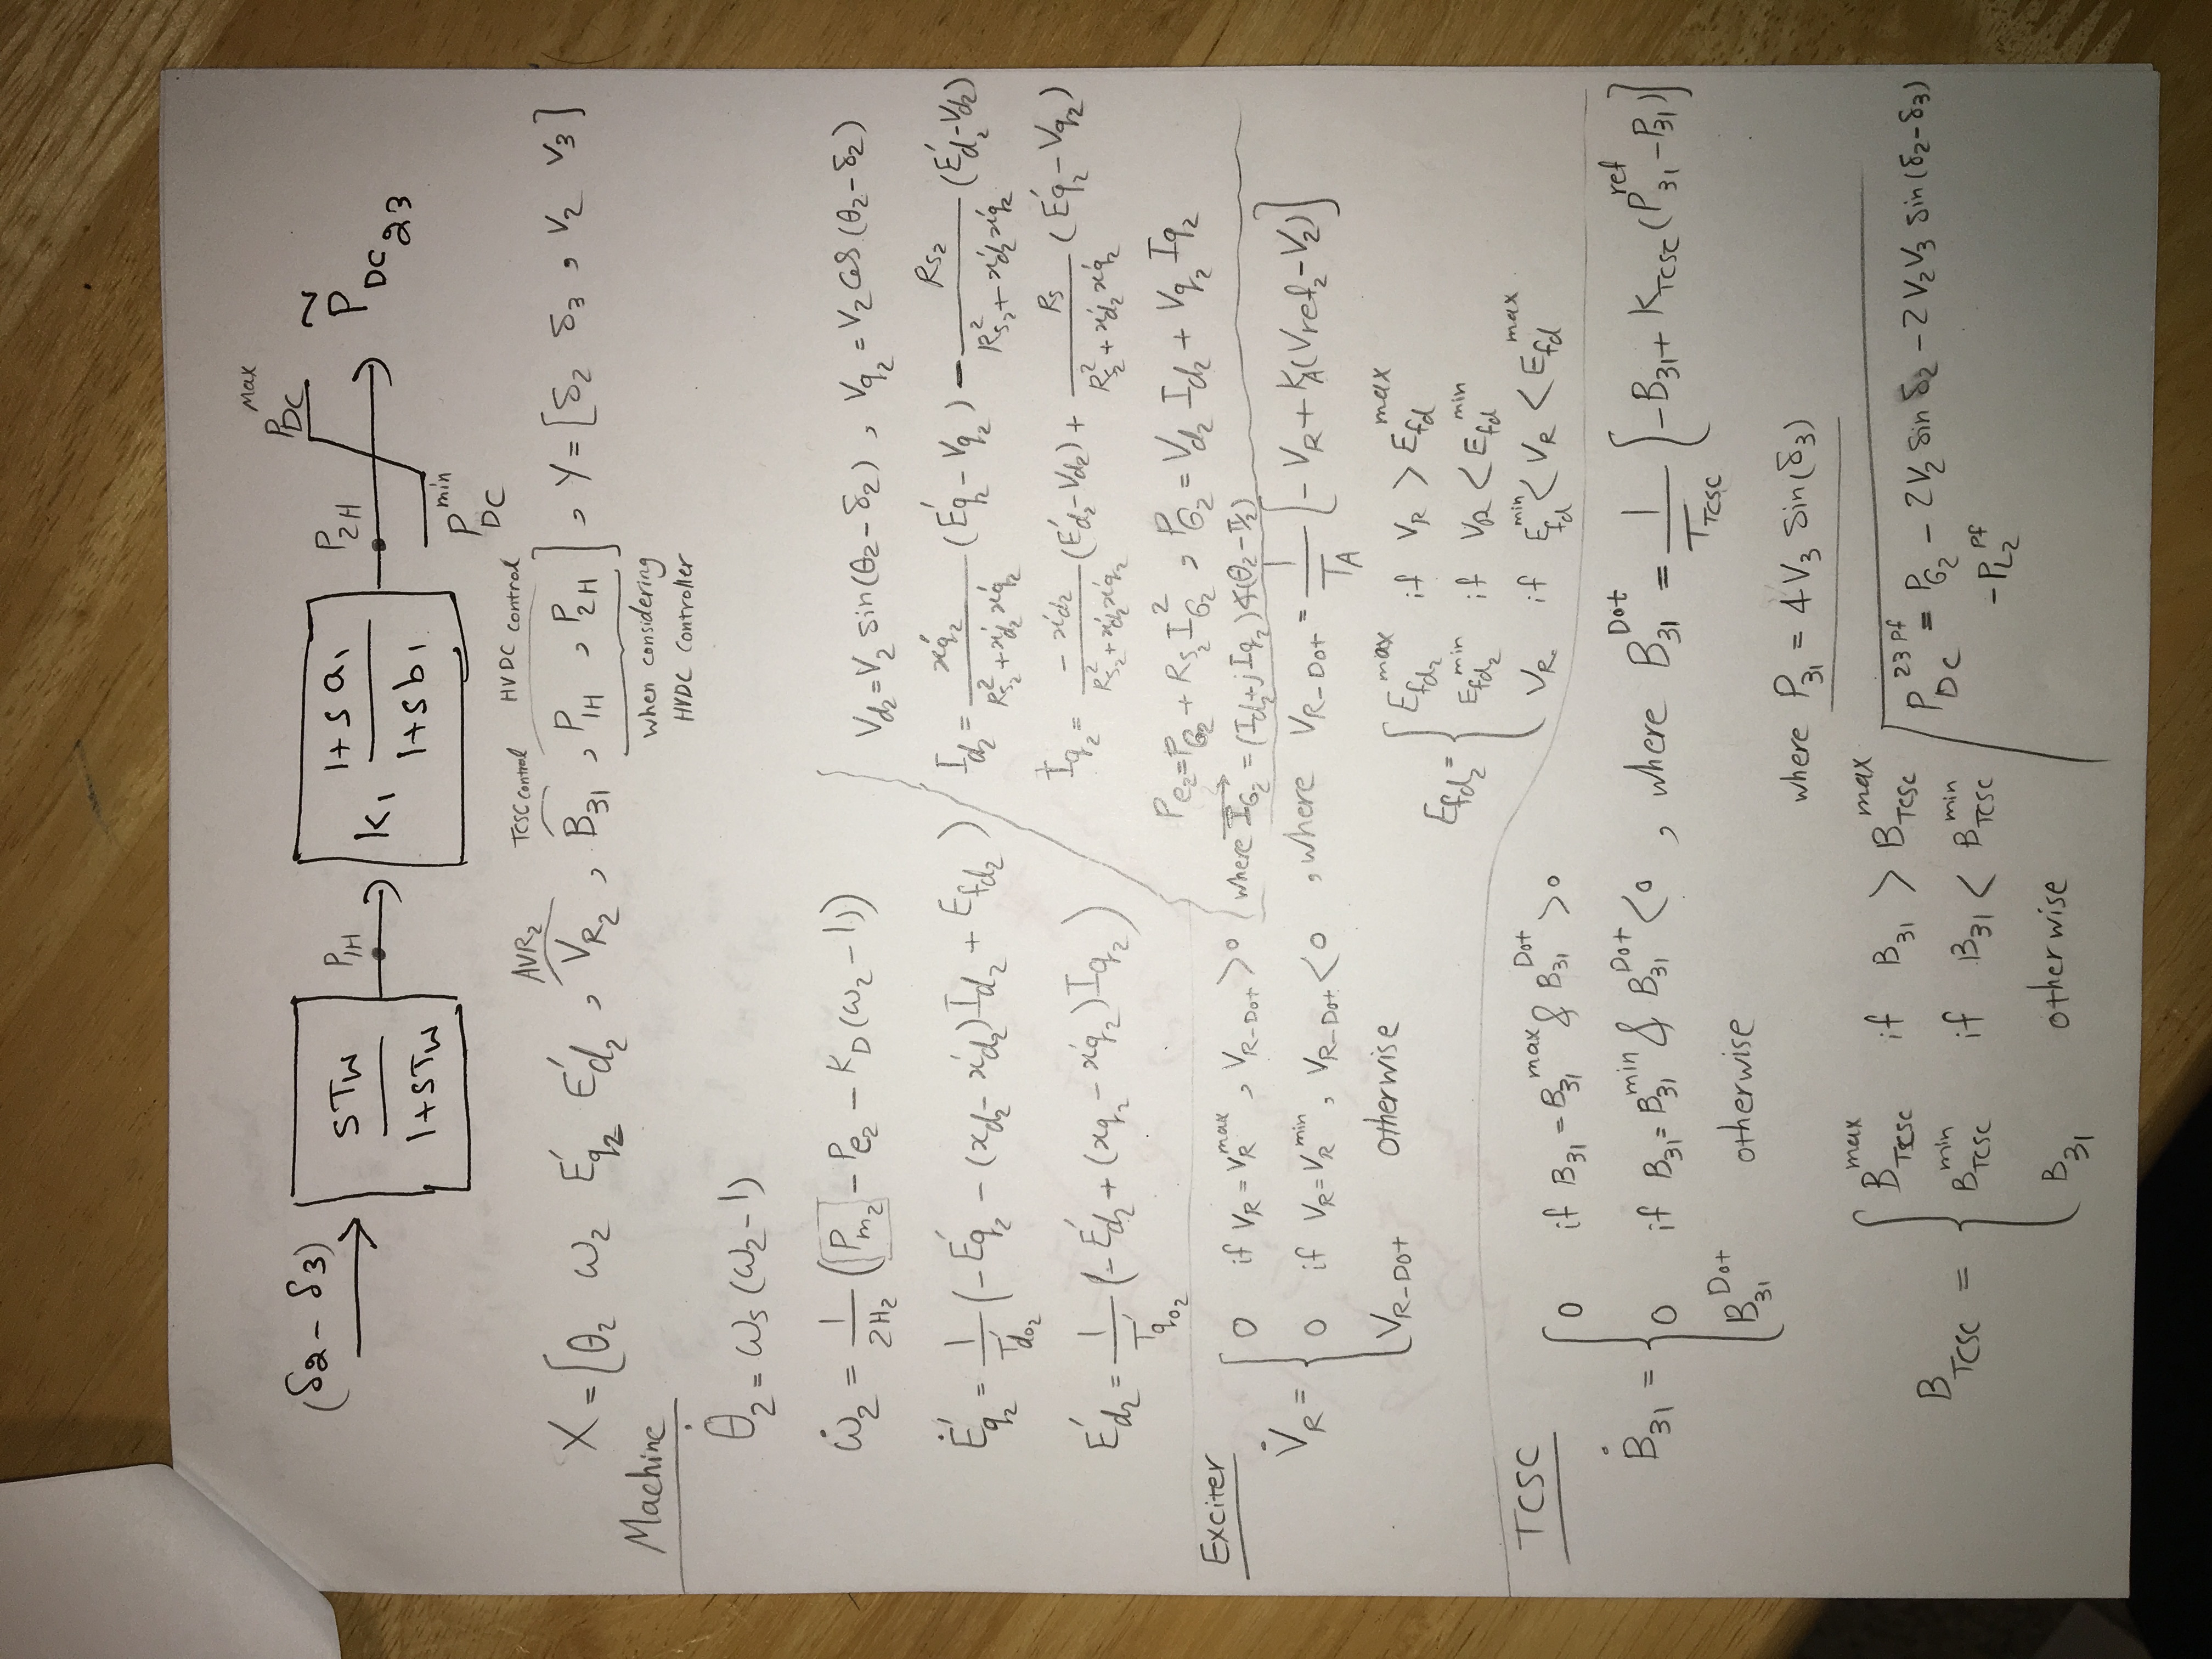 (δ2 - δ3) → [sT_W / (1+sT_W)] P_1H → [k_1 (1+s a_1) / (1+s b_1)] P_2H → P̃_DC23
P_DC^max
P_DC^min
AVR_2 TCSC control HVDC control
X = [θ_2 ω_2 E'_q2 E'_d2 , V_R2 , B_31 , P_1H , P_2H] , Y = [δ_2 δ_3 , V_2 V_3]
when considering
HVDC Controller
Machine
θ̇_2 = ω_s (ω_2 - 1)
ω̇_2 = 1/(2H_2) (P_m2 - P_e2 - K_D (ω_2 - 1))
Ė'_q2 = 1/T'_do2 (-E'_q2 - (x_d2 - x'_d2) I_d2 + E_fd2)
E'_d2 = 1/T'_qo2 (-E'_d2 + (x_q2 - x'_q2) I_q2)
V_d2 = V_2 sin(θ_2 - δ_2) , V_q2 = V_2 cos(θ_2 - δ_2)
I_d2 = x'_q2/(R_s2^2 + x'_d2 x'_q2) (E'_q2 - V_q2) - R_s2/(R_s2^2 + x'_d2 x'_q2) (E'_d2 - V_d2)
I_q2 = -x'_d2/(R_s2^2 + x'_d2 x'_q2) (E'_d2 - V_d2) + R_s/(R_s2^2 + x'_d2 x'_q2) (E'_q2 - V_q2)
P_e2 = P_G2 + R_s2 I_G2^2 , P_G2 = V_d2 I_d2 + V_q2 I_q2
where I_G2 = (I_d2 + j I_q2) ∡(θ_2 - π/2)
Exciter
V̇_R = { 0 if V_R = V_R^max , V_R-Dot > 0
0 if V_R = V_R^min , V_R-Dot < 0 , where V_R-Dot = 1/T_A [-V_R + K_A (Vref_2 - V_2)]
V_R-Dot otherwise
E_fd2 = { E_fd2^max if V_R > E_fd^max
E_fd2^min if V_R < E_fd^min
V_R if E_fd^min < V_R < E_fd^max
TCSC
Ḃ_31 = { 0 if B_31 = B_31^max & B_31^Dot > 0
0 if B_31 = B_31^min & B_31^Dot < 0 , where B_31^Dot = 1/T_TCSC [-B_31 + K_TCSC (P_31^ref - P_31)]
B_31^Dot otherwise
where P_31 = 4 V_3 sin(δ_3)
B_TCSC = { B_TCSC^max if B_31 > B_TCSC^max
B_TCSC^min if B_31 < B_TCSC^min
B_31 otherwise
P_DC^23 pf = P_G2 - 2V_2 sin δ_2 - 2V_2 V_3 sin(δ_2 - δ_3)
- P_L2^pf